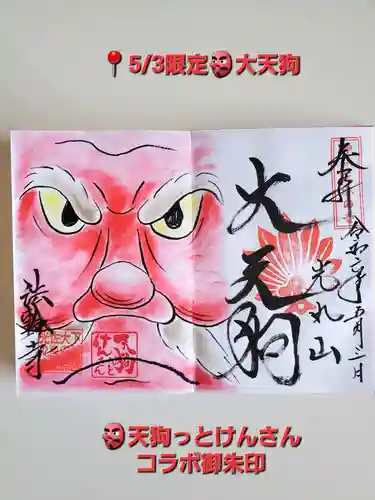 📍5/3限定👺大天狗
奉拝
令和六年五月三日
光丸山
大天狗
法輪寺
天狗
けんさん
👺天狗っとけんさん
コラボ御朱印